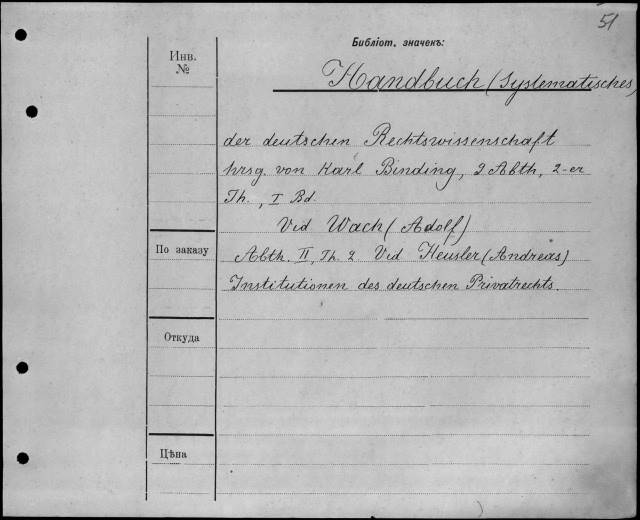 51
Библіот. значекъ:
Инв.
№
Handbuch (Systematisches)
der deutschen Rechtswissenschaft
hrsg. von Karl Binding, 9 Abth, 2-er
Th., I Bd.
Vid Wach (Adolf)
По заказу
Abth. II, Th. 2 Vid Heusler (Andreas)
Institutionen des deutschen Privatrechts.
Откуда
Цѣна